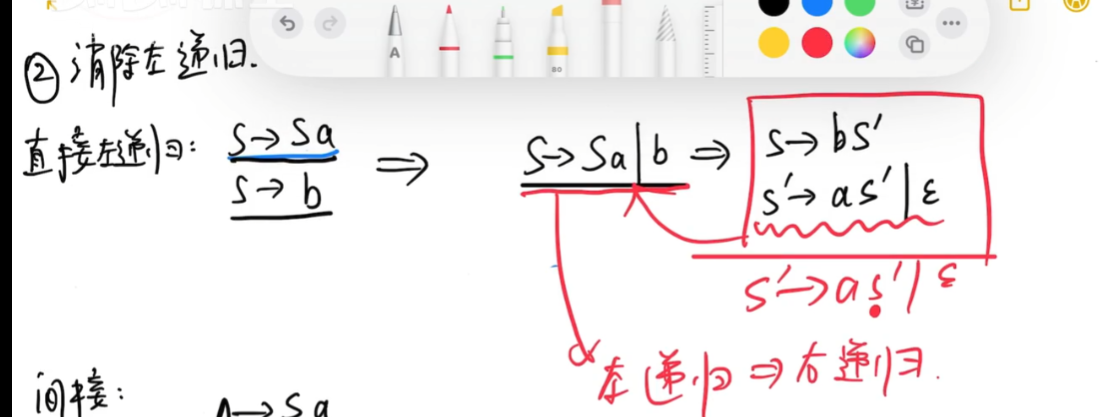 ② 消除左递归.
直接左递归: S→Sa ⇒ S→Sa|b ⇒ S→bS'
S→b S'→aS'|ε
S'→aS'|ε
左递归⇒右递归.
间接:
A→Sa
A
80